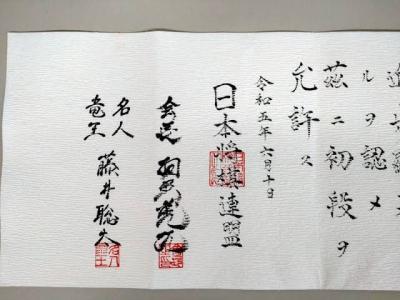 ルヲ認メ
茲ニ初段ヲ
允許ス
令和五年六月十日
日本将棋連盟
会長 羽生善治
名人
竜王 藤井聡太